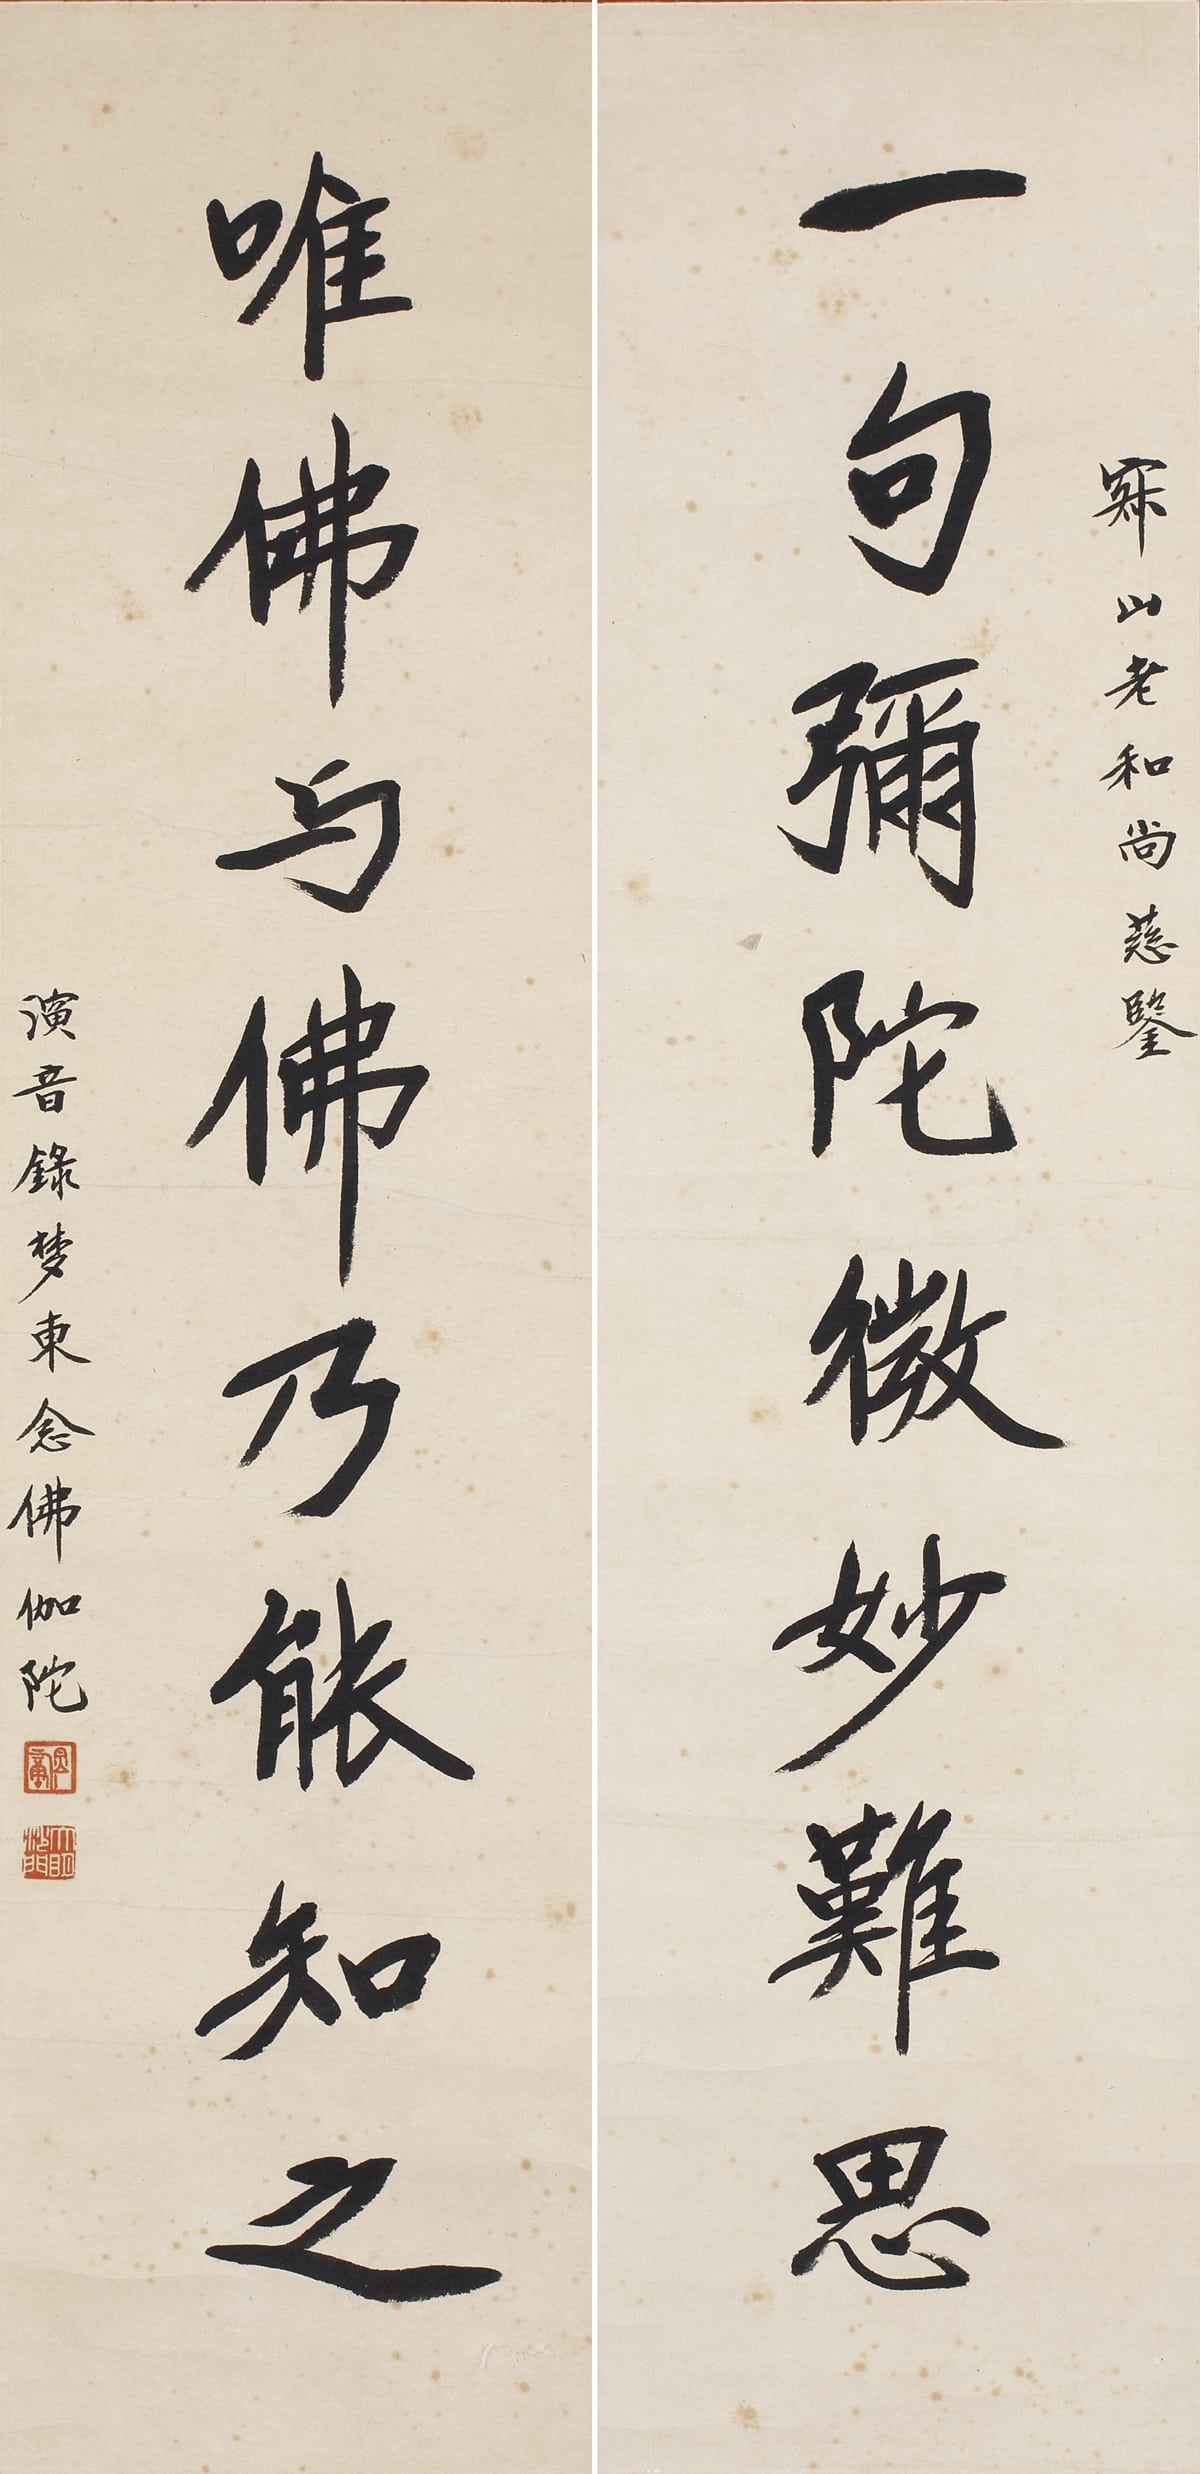 寂山老和尚慈鑒
一句彌陀微妙難思
唯佛与佛乃能知之
演音錄梦東念佛伽陀